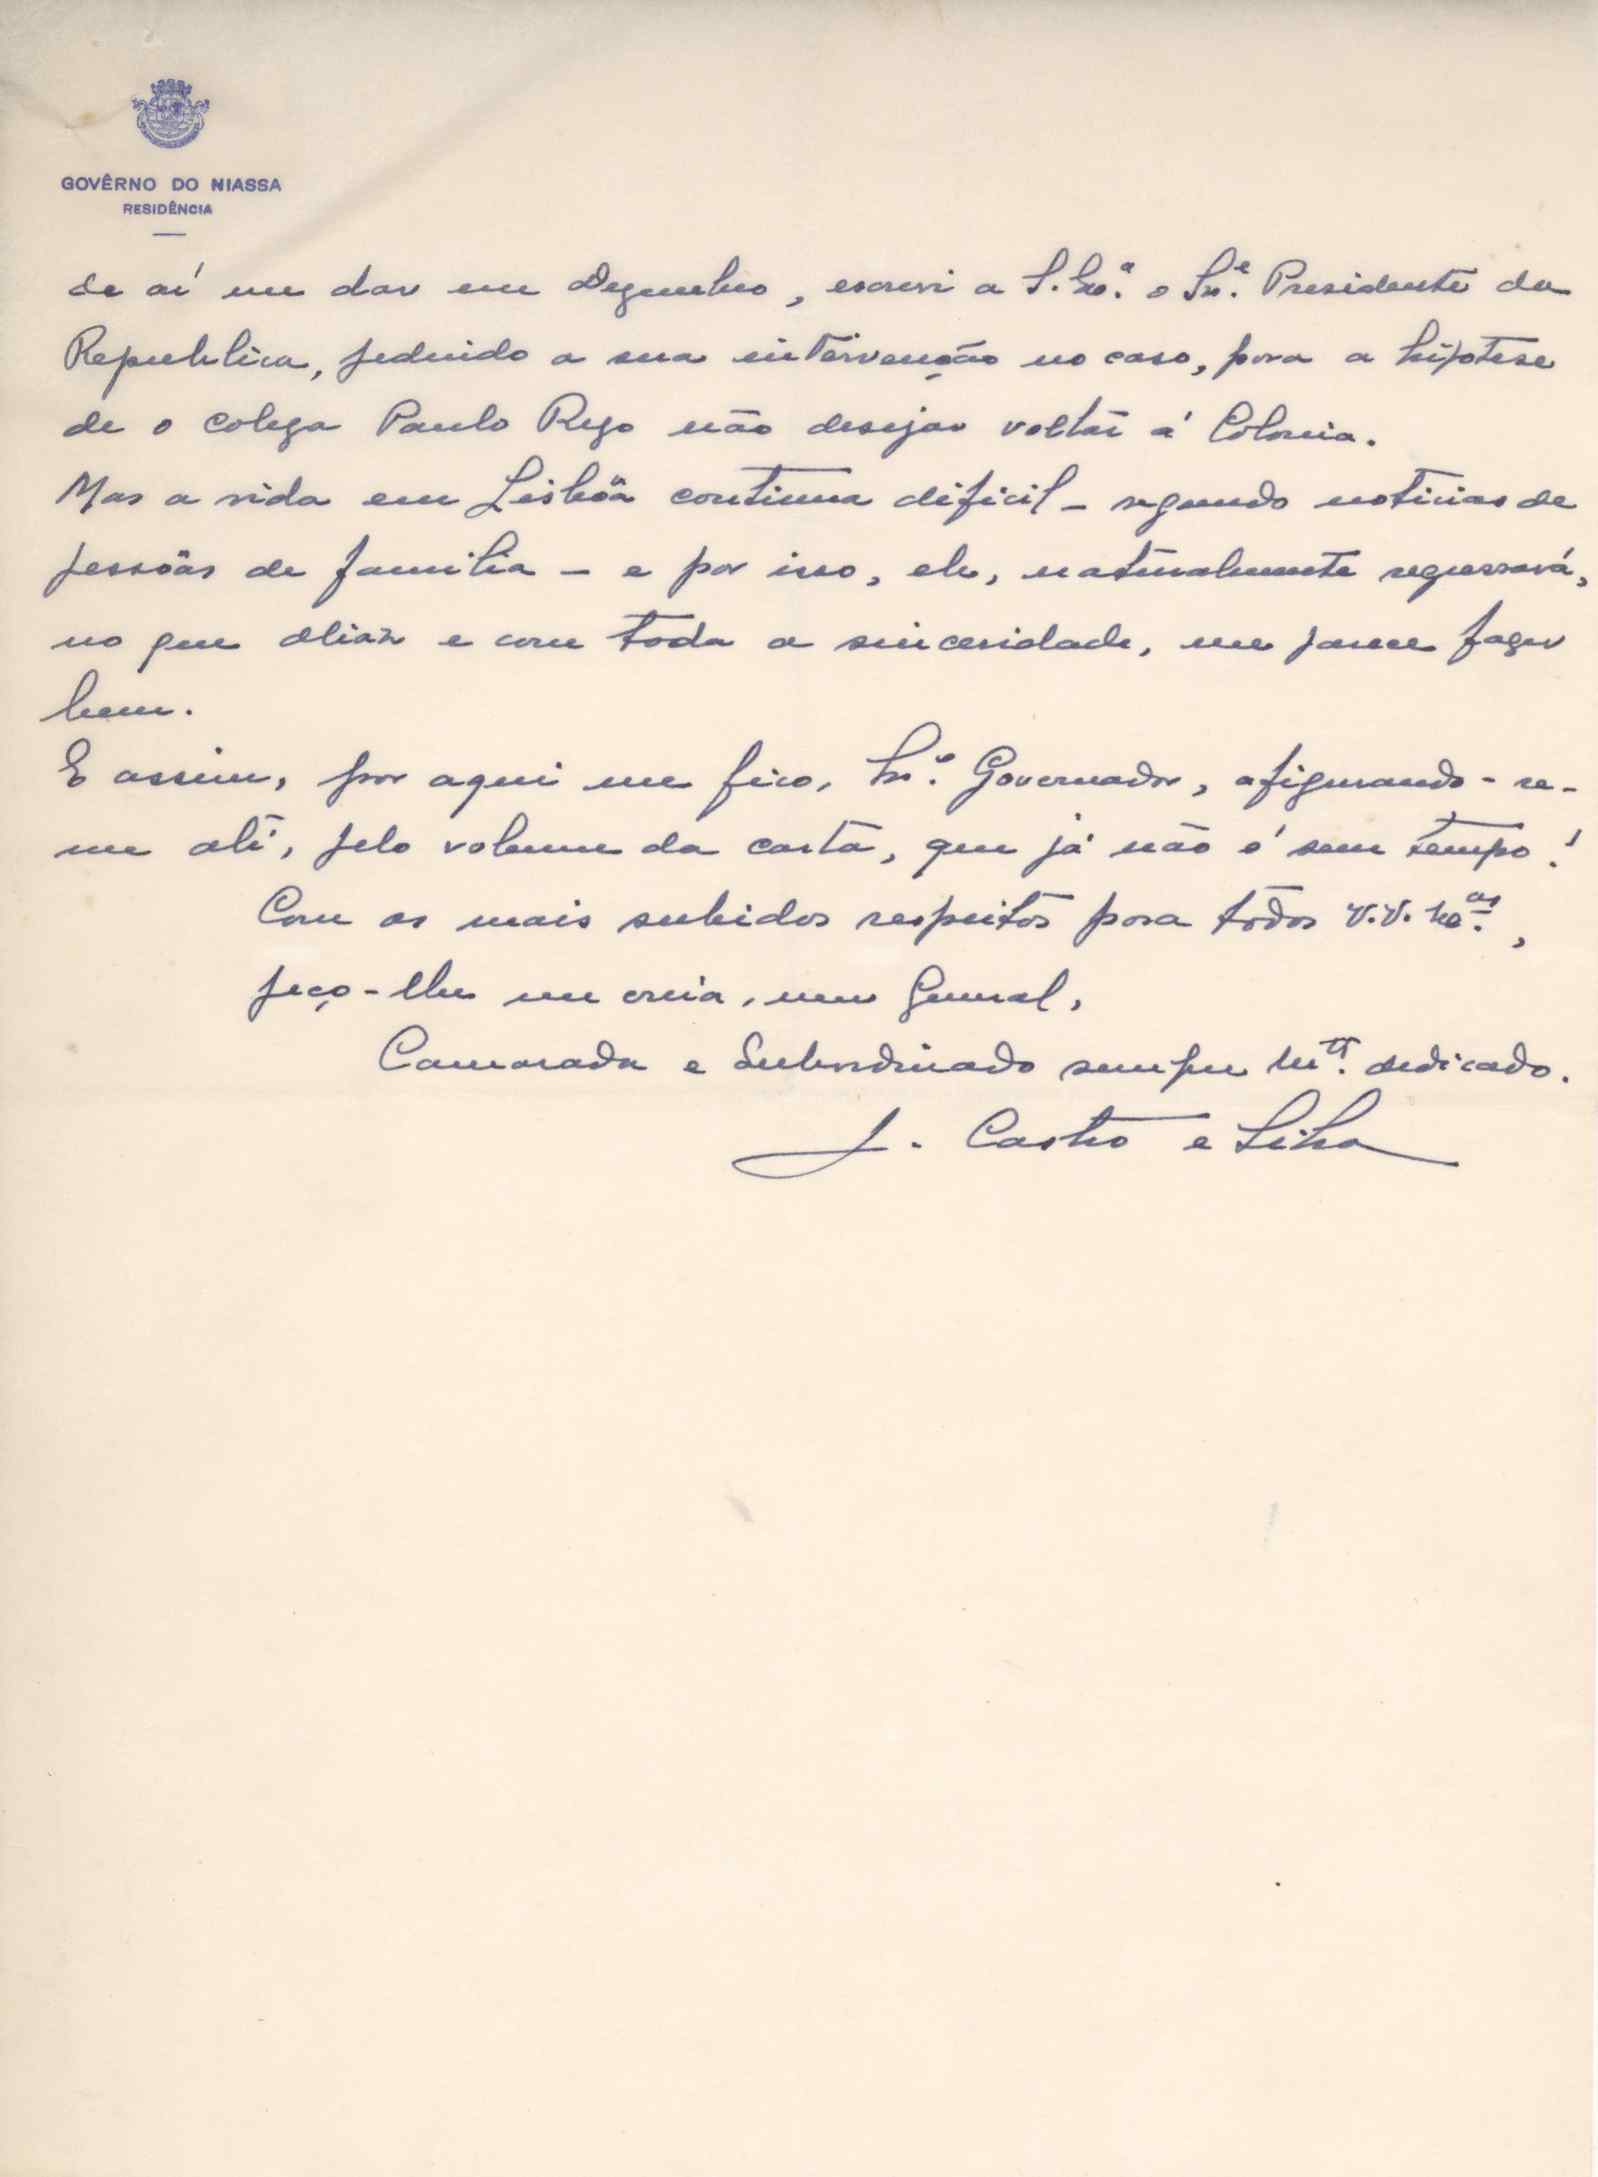 GOVÊRNO DO NIASSA
RESIDÊNCIA
de aí me dar em Dezembro, escrevi a S. Exª. o Snr. Presidente da
Republica, pedindo a sua intervenção no caso, para a hipotese
de o colega Paulo Rego não desejar voltar á Colonia.
Mas a vida em Lisbôa continua dificil - segundo noticias de
pessôas de familia - e por isso, ele, naturalmente regressará,
no que aliaz e com toda a sinceridade, me parece fazer
bem.
E assim, por aqui me fico, Snr. Governador, afigurando-se-
me até, pelo volume da carta, que já não é sem tempo!
Com os mais subidos respeitos para todos V.V. Exas.,
peço-lhe me creia, meu General,
Camarada e Subordinado sempre mtº. dedicado.
J. Castro e Silva